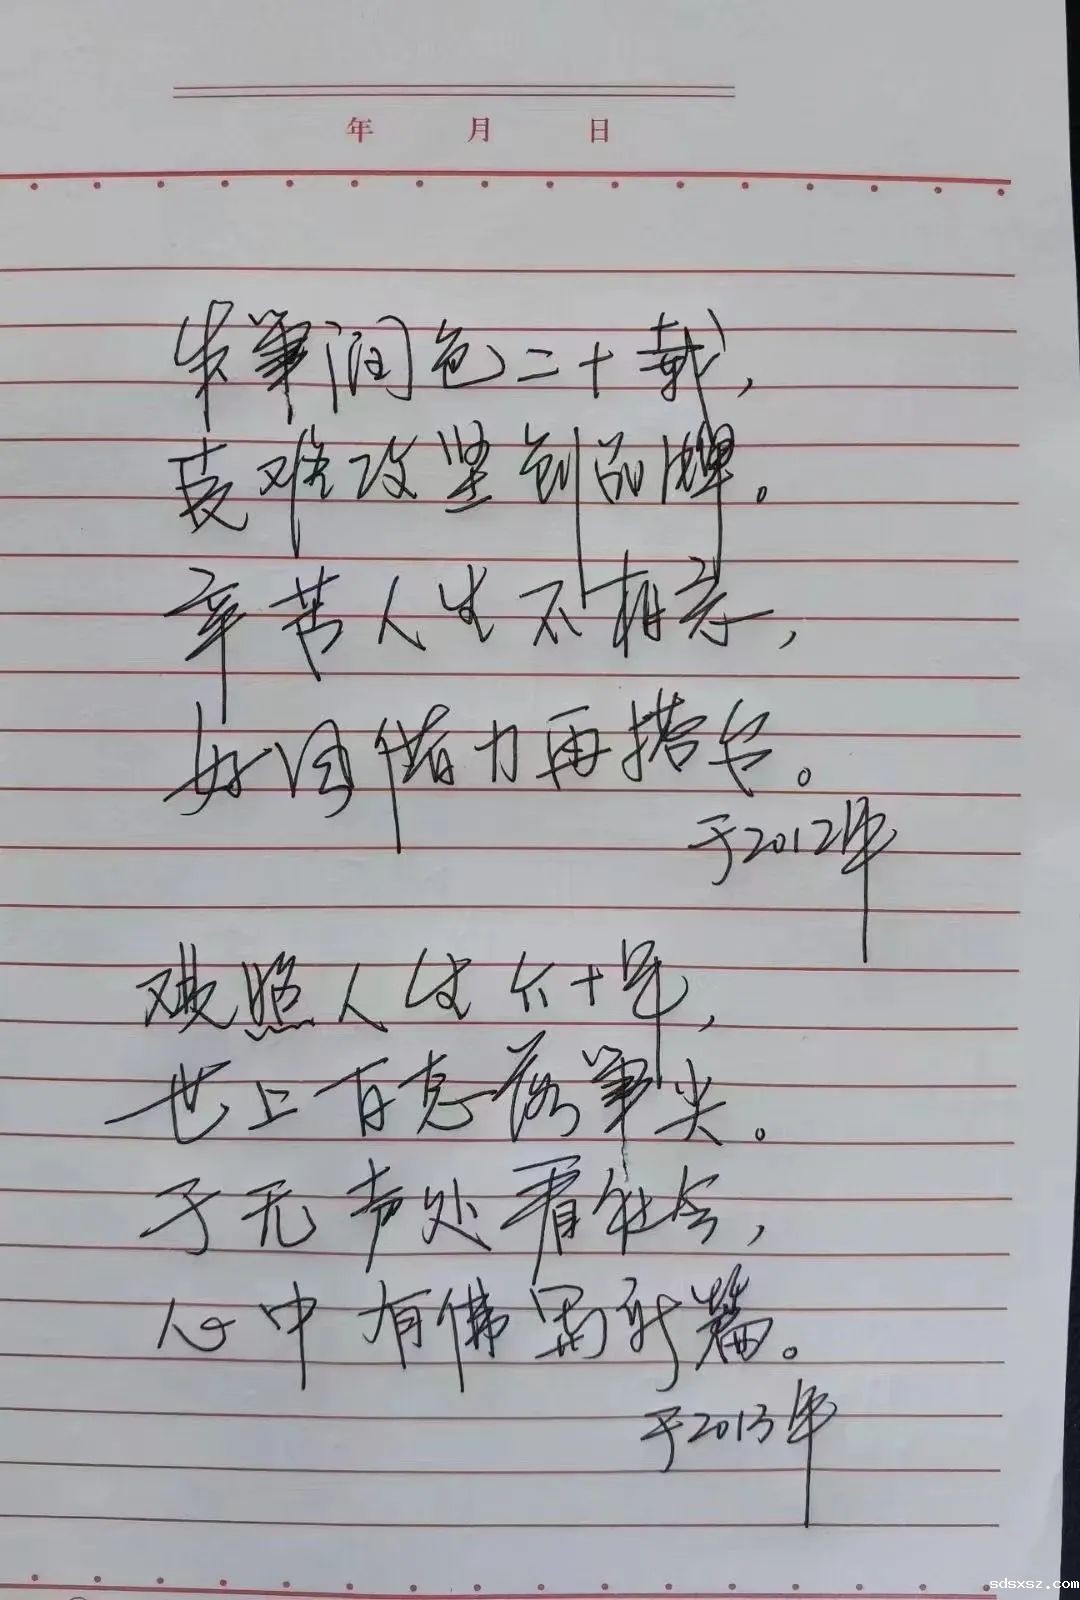 年 月 日
朱笔润色二十载,
艰难攻坚创品牌。
辛苦人生不相弃,
好风借力再搭台。
于2012年
观照人生六十年,
世上百态落笔尖。
于无声处看社会,
心中有佛著新篇。
于2013年
sdsxsz.com